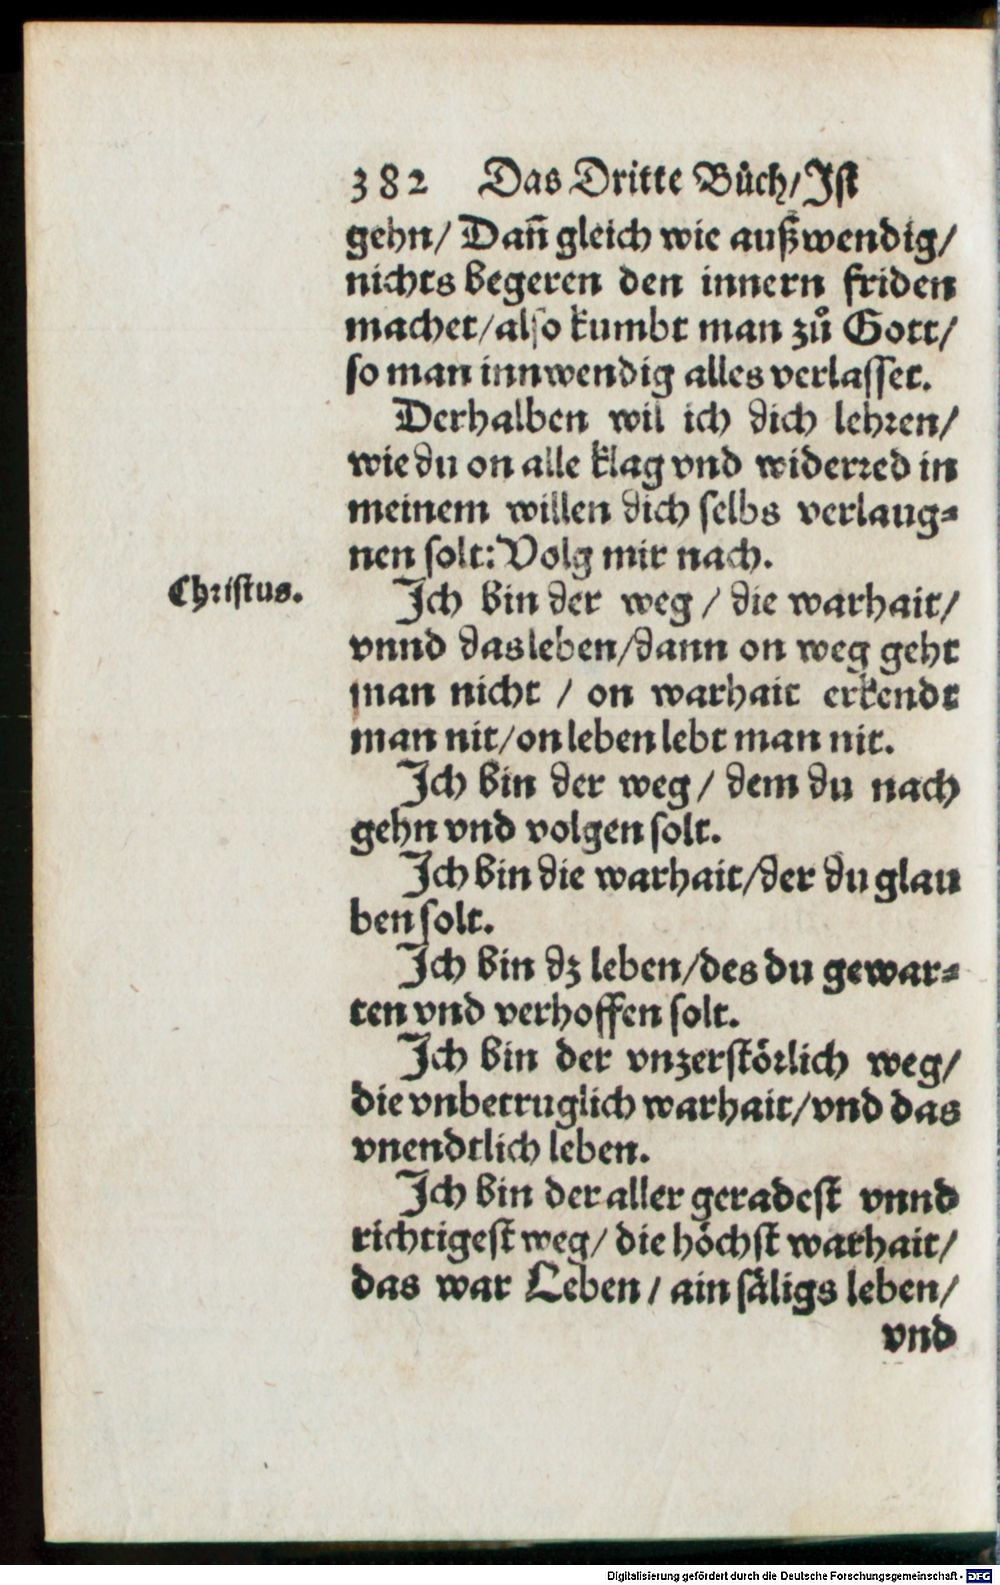 382 Das Dritte Bůch/ Ist
gehn/ Dañ gleich wie außwendig/
nichts begeren den innern friden
machet/ also kumbt man zů Gott/
so man innwendig alles verlasset.
Derhalben wil ich dich lehren/
wie du on alle klag vnd widerred in
meinem willen dich selbs verlaug=
nen solt: Volg mir nach.
Christus.
Ich bin der weg / die warhait/
vnnd das leben/ dann on weg geht
man nicht / on warhait erkendt
man nit/ on leben lebt man nit.
Ich bin der weg / dem du nach
gehn vnd volgen solt.
Ich bin die warhait/ der du glau
ben solt.
Ich bin dz leben/ des du gewar=
ten vnd verhoffen solt.
Ich bin der vnzerstörlich weg/
die vnbetruglich warhait/ vnd das
vnendtlich leben.
Ich bin der aller geradest vnnd
richtigest weg/ die höchst warhait/
das war Leben / ain säligs leben/
vnd
Digitalisierung gefördert durch die Deutsche Forschungsgemeinschaft - DFG